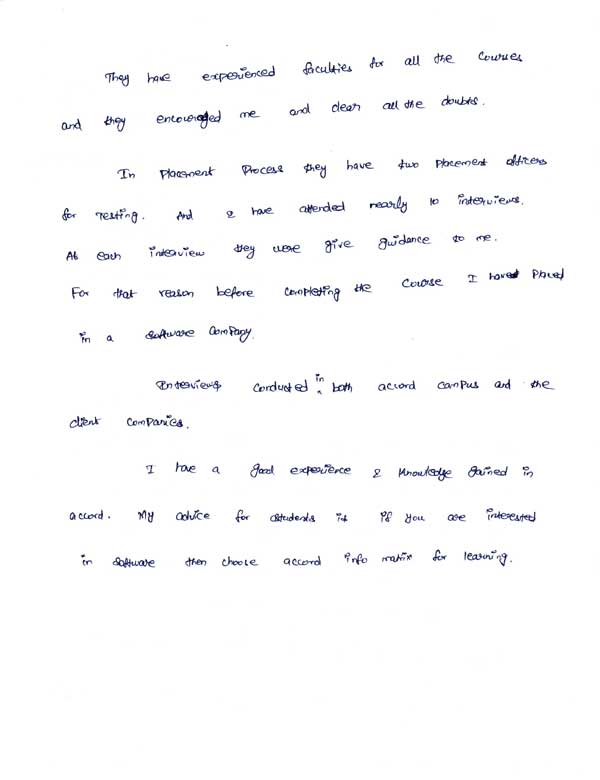 They have experienced faculties for all the courses
and they encouraged me and clear all the doubts.
In Placement Process they have two Placement officers
for Testing. And I have attended nearly 10 interviews.
At each interview they were give guidance to me.
For that reason before completing the course I have Placed
in a software company.
Interviews conducted in both accord campus and the
client companies.
I have a good experience & knowledge gained in
accord. My advice for students is if you are interested
in software then choose accord info matrix for learning.